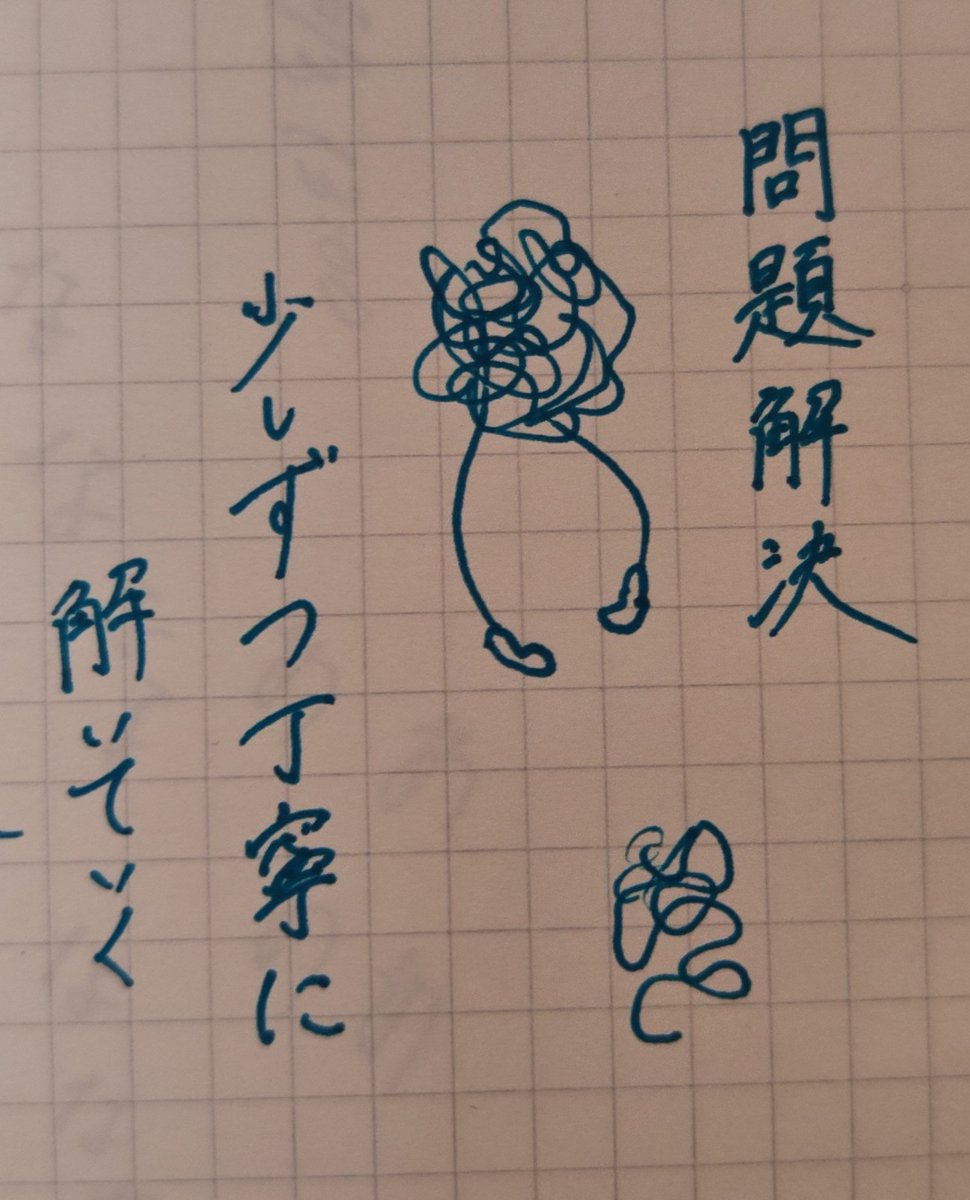 問題解決
少しずつ丁寧に
解いていく